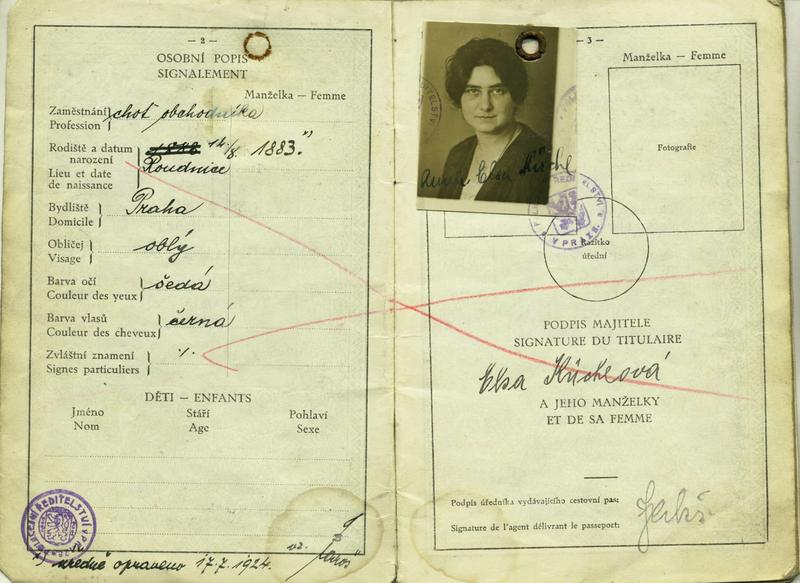 — 2 —
OSOBNÍ POPIS
SIGNALEMENT
Manželka — Femme
Zaměstnání
Profession
choť obchodníka
Rodiště a datum
narození
Lieu et date
de naissance
14/8. 1883.
Roudnice
Bydliště
Domicile
Praha
Obličej
Visage
oblý
Barva očí
Couleur des yeux
šedá
Barva vlasů
Couleur des cheveux
černá
Zvláštní znamení
Signes particuliers
DĚTI — ENFANTS
Jméno Stáří Pohlaví
Nom Age Sexe
úředně opraveno 17.7.1924.
— 3 —
Manželka — Femme
Fotografie
Elsa
V PRAZE
Razítko
úřední
PODPIS MAJITELE
SIGNATURE DU TITULAIRE
Elsa Küchlová
A JEHO MANŽELKY
ET DE SA FEMME
Podpis úředníka vydávajícího cestovní pas:
Signature de l'agent délivrant le passeport: